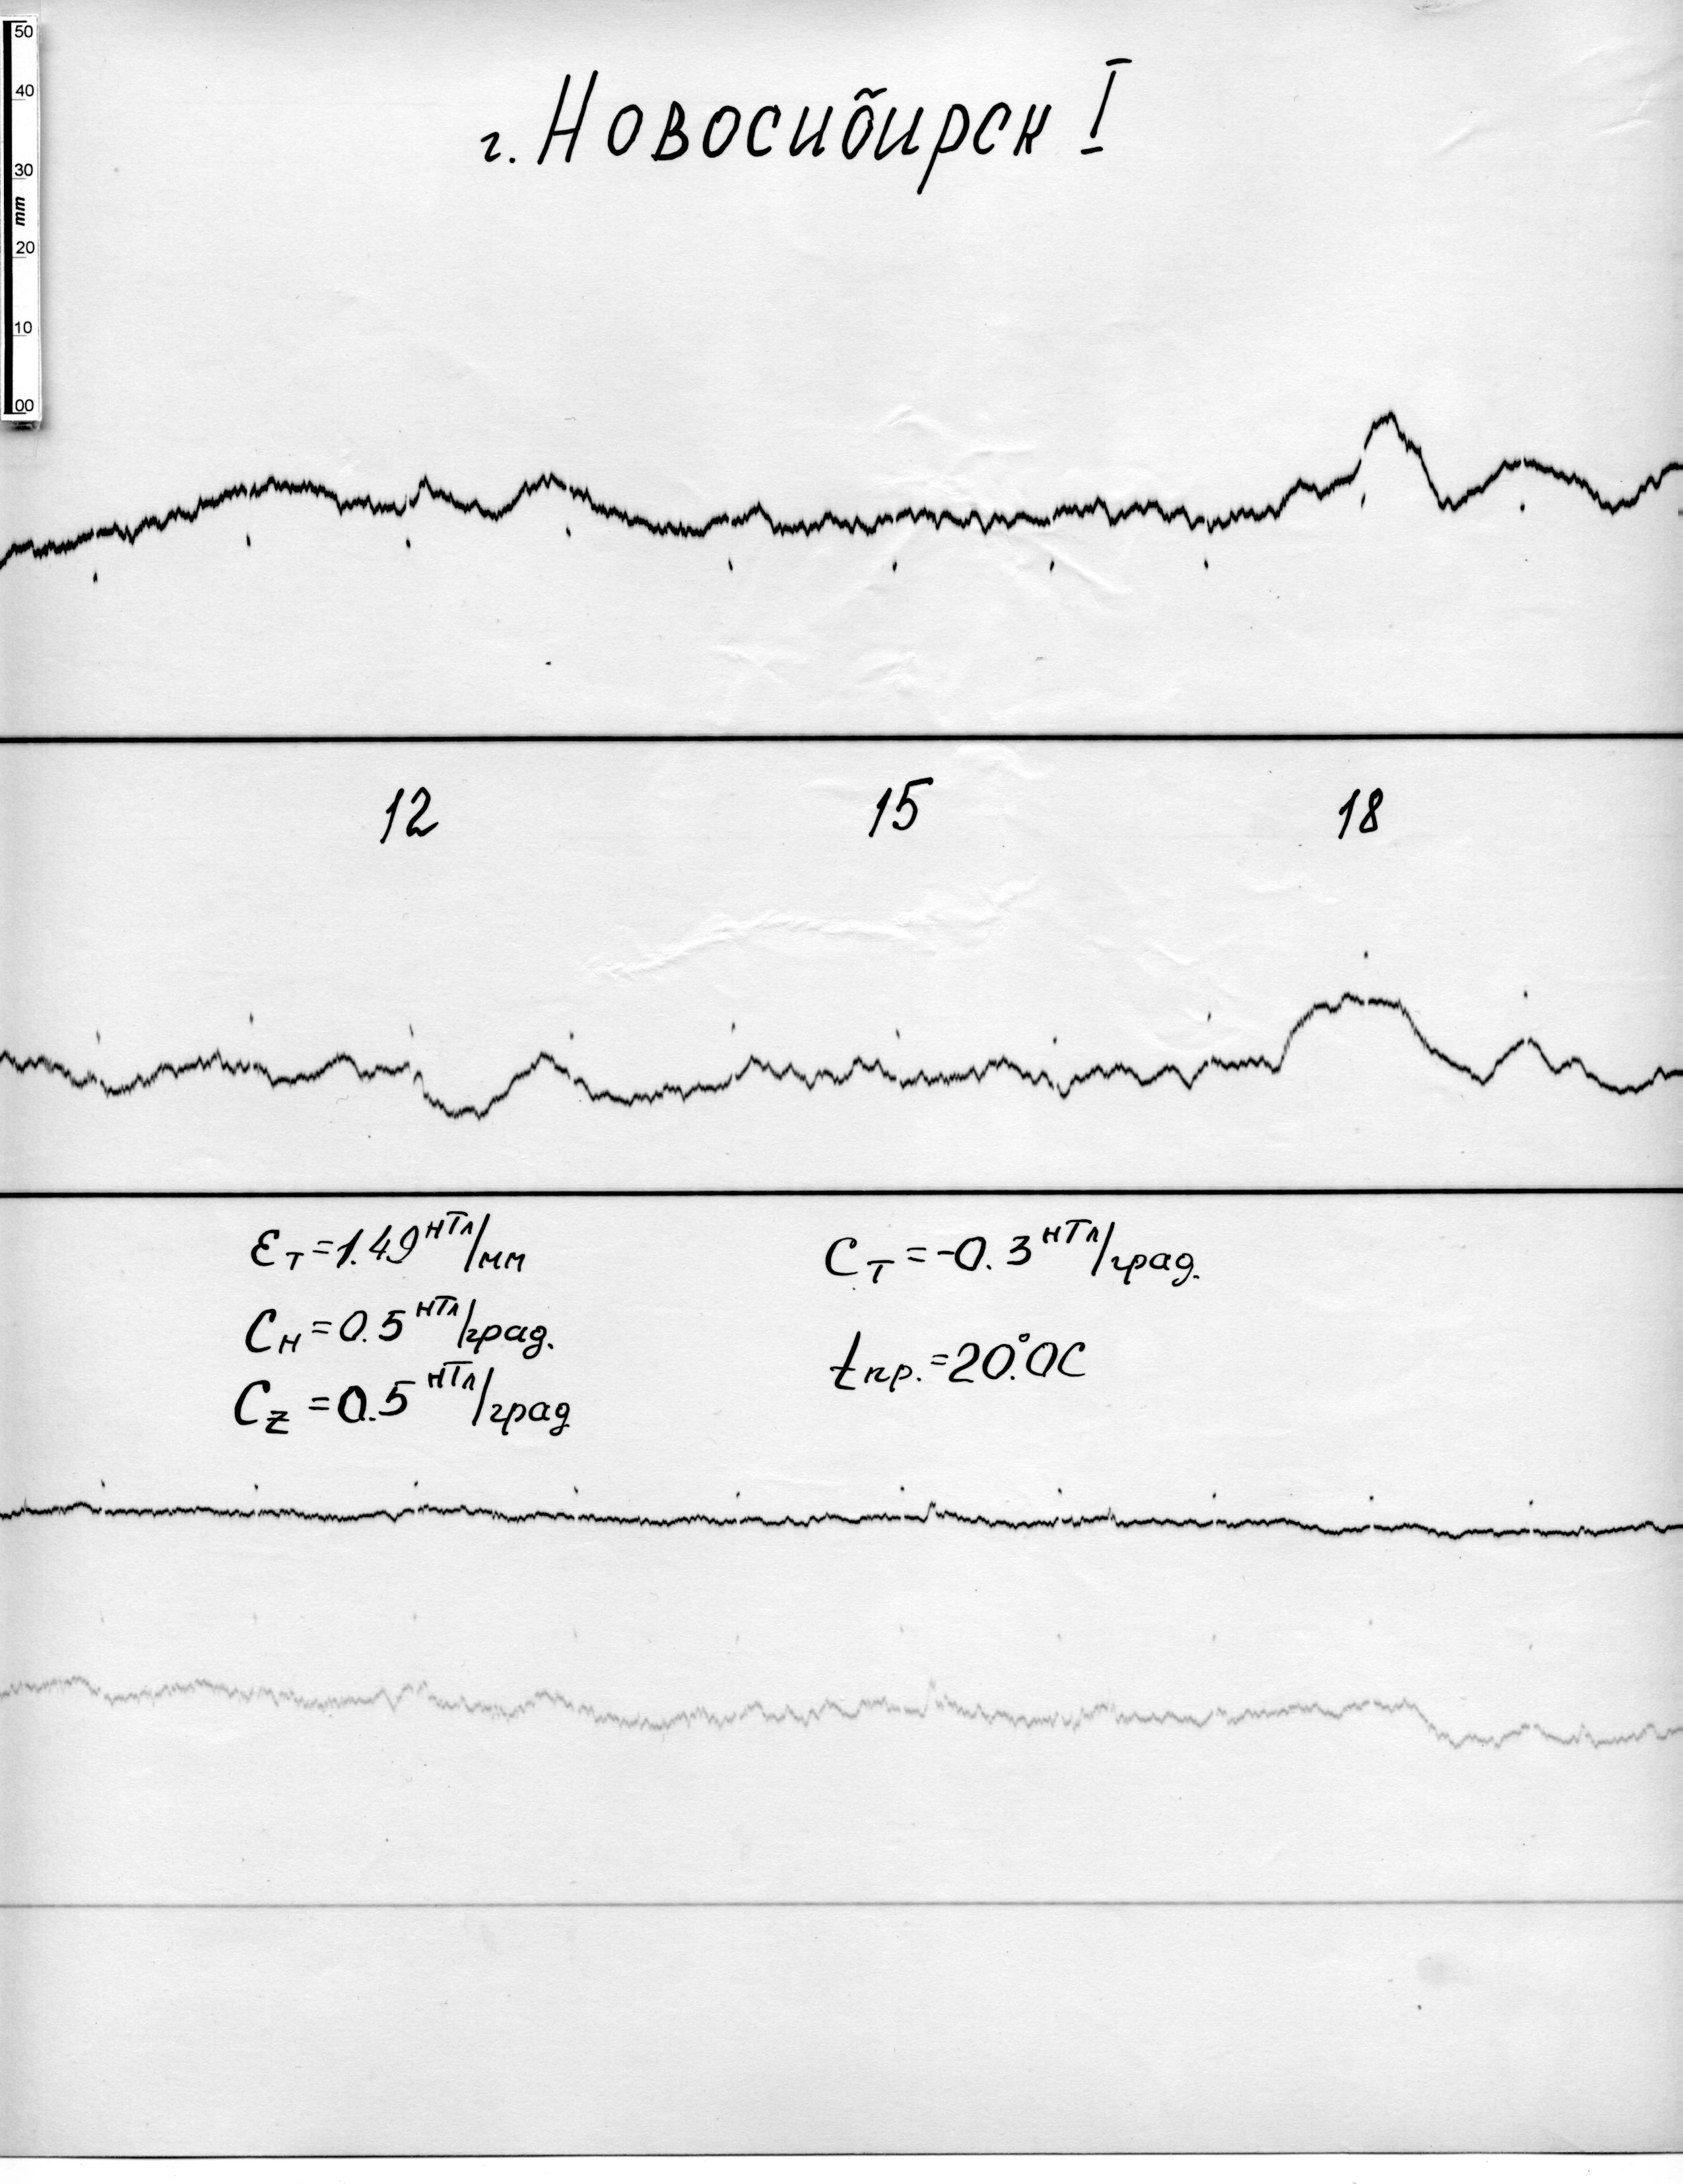 50
40
30
mm
20
10
00
г. Новосибирск I
12 15 18
Ɛт = 1.49 нТл/мм
Cн = 0.5 нТл/град.
Cz = 0.5 нТл/град
Cт = -0.3 нТл/град.
tпр. = 20°.0C